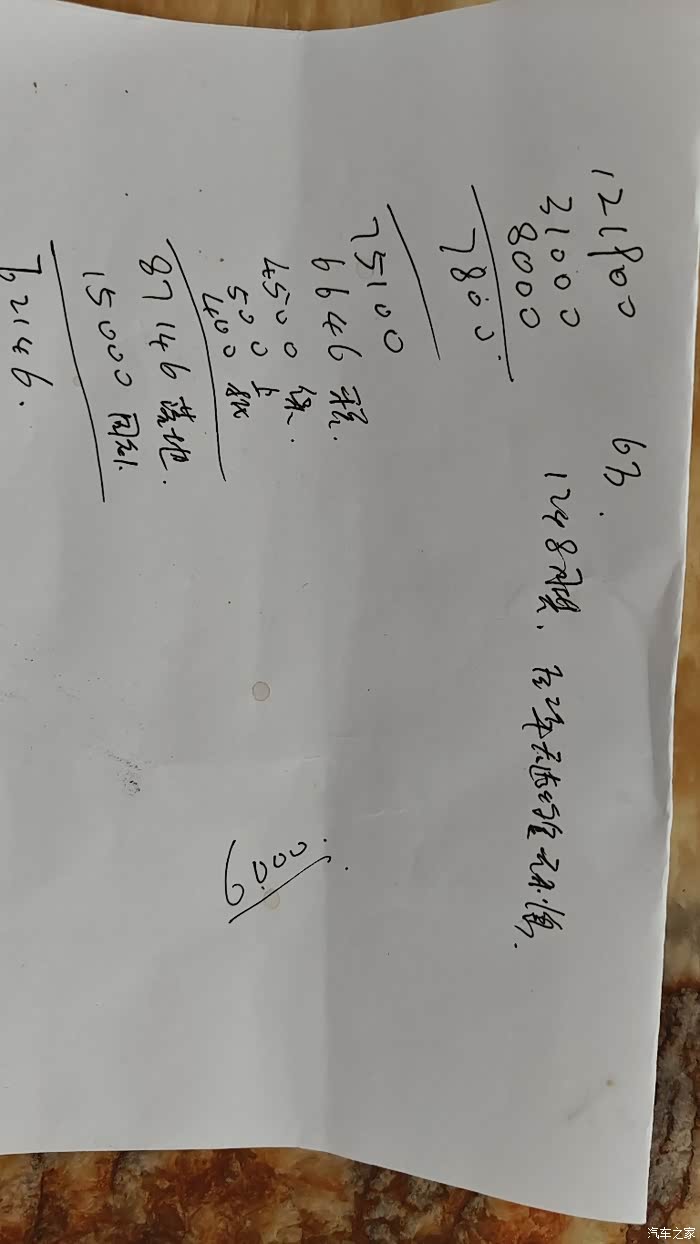 121900 63.
31000
8000
7800
75100
6646 税.
4500 保.
500 上
400
87146 落地.
15000 国补.
72146.
6000
汽车之家